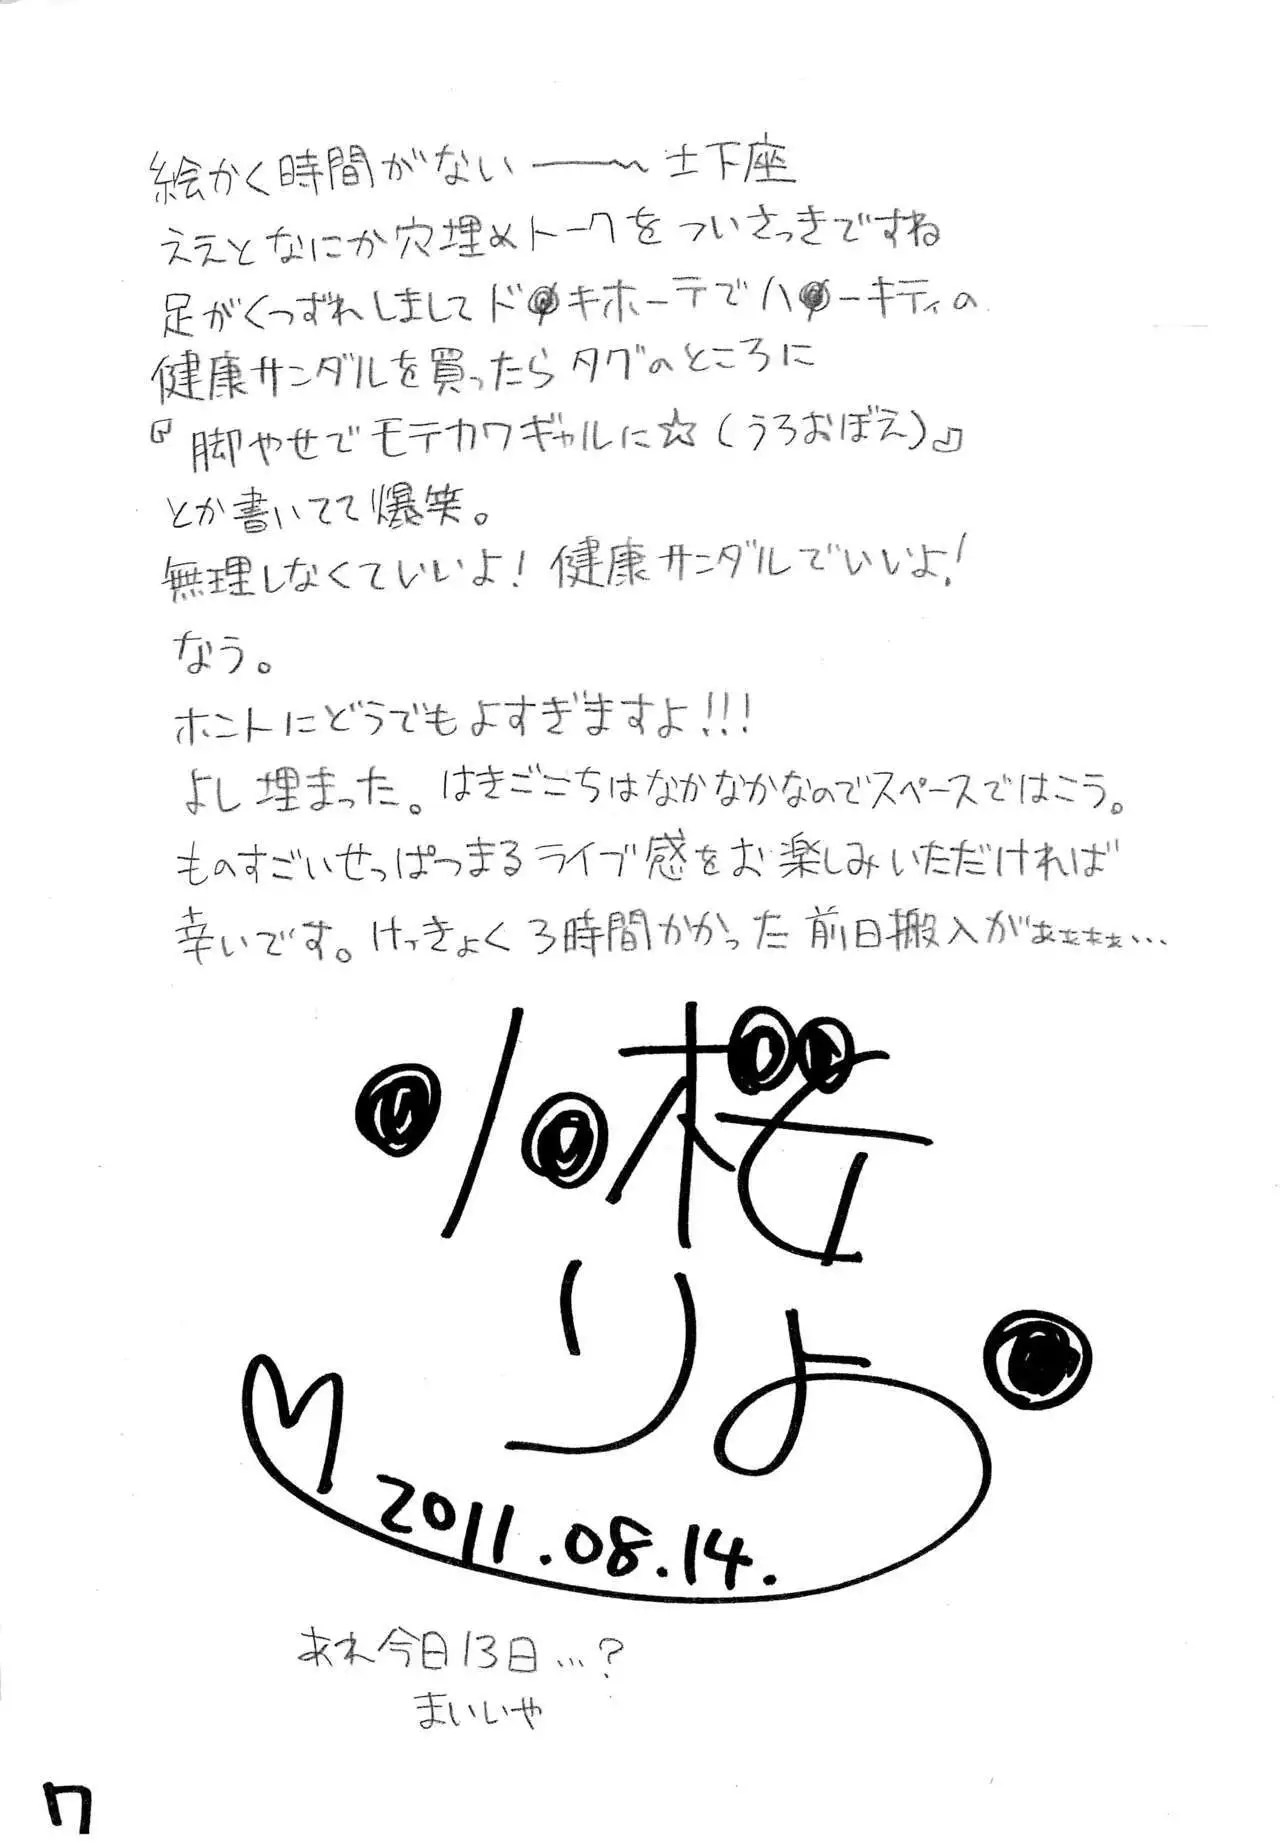 絵かく時間がない――〜土下座
ええとなにか穴埋めトークをついさっきですね
足がくつずれしましてド●キホーテでハ●ーキティの
健康サンダルを買ったらタグのところに
『脚やせでモテカワギャルに☆(うろおぼえ)』
とか書いてて爆笑。
無理しなくていいよ!健康サンダルでいいよ!
なう。
ホントにどうでもよすぎますよ!!!
よし埋まった。はきごこちはなかなかなのでスペースではこう。
ものすごいせっぱつまるライブ感をお楽しみいただければ
幸いです。けっきょく3時間かかった前日搬入がぁぁぁぁ…
小桜
りよ
2011.08.14.
あれ今日13日…?
まいいや
7